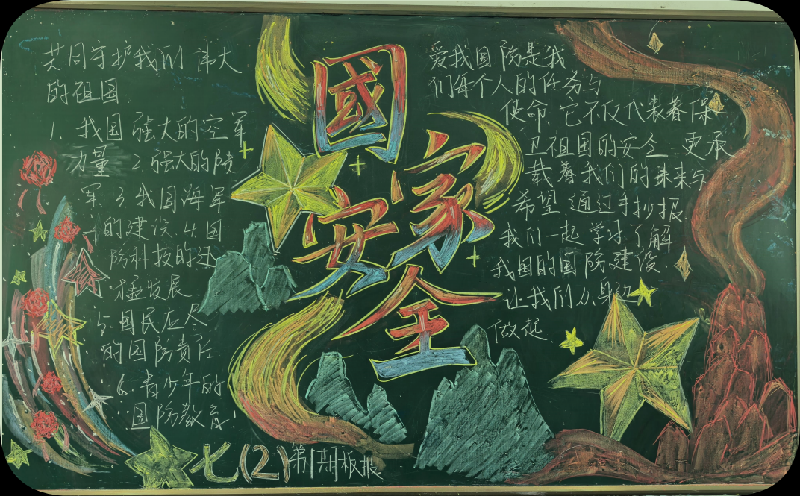 共同守护我们伟大
的祖国
1、我国强大的空军
力量 2、强大的陆
军、3、我国海军
的建设、4、国
防科技的过
发展
5、国民应尽
的国防责任
6、青少年的
国防教育!
國家安全
爱我国防是我
们每个人的任务与
使命 它不仅代表着保
卫祖国的安全 更承
载着我们的未来与
希望 通过手抄报
我们一起学习了解
我国的国防建设
让我们从身边
做起
七(2) 第1期板报